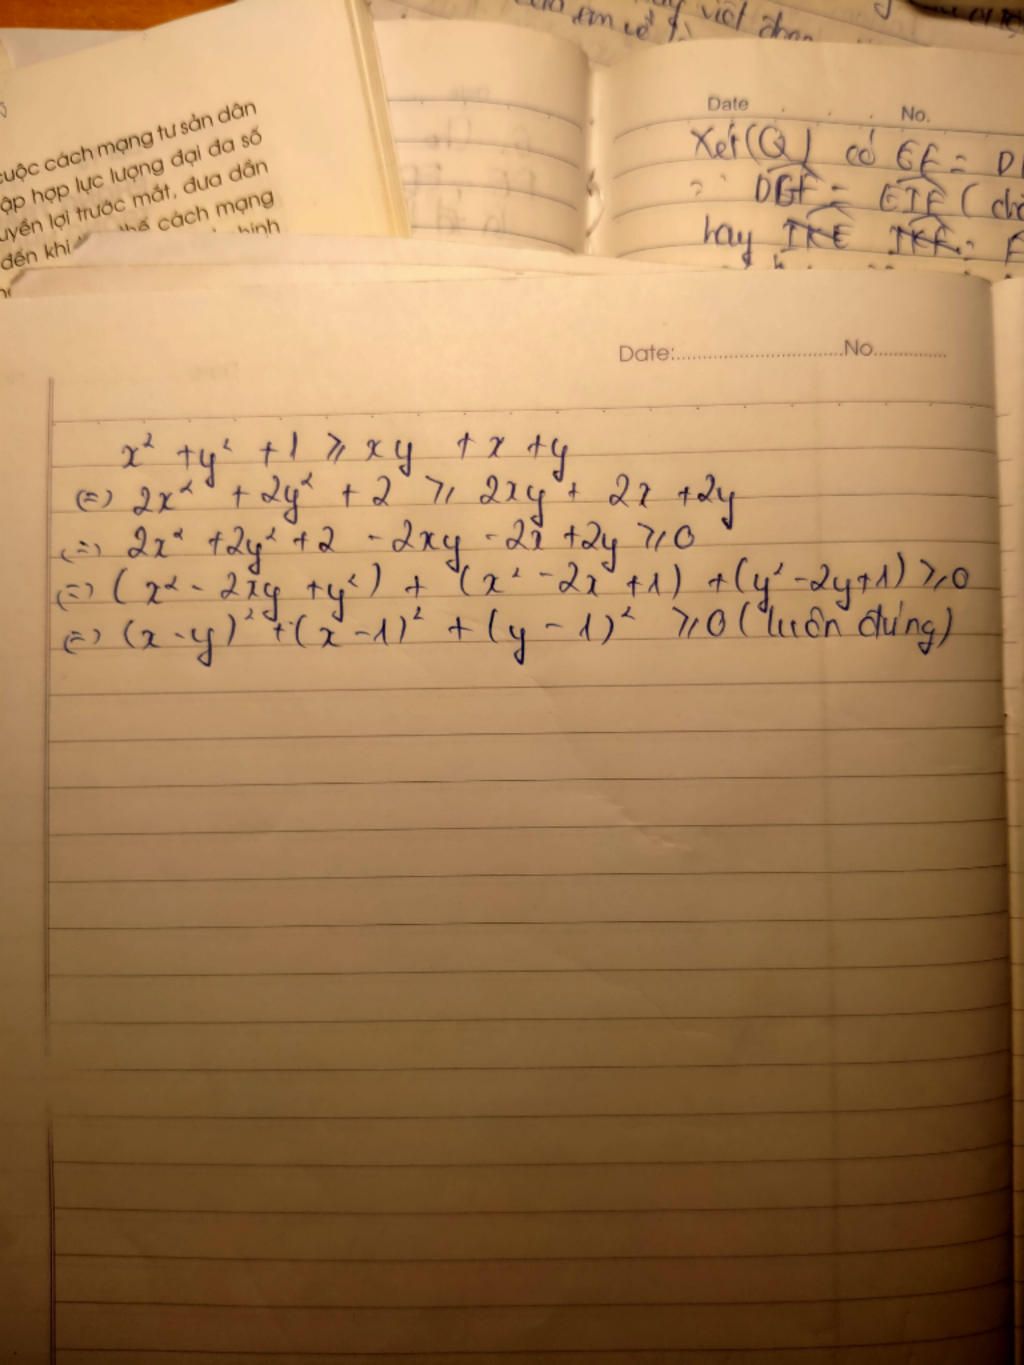 cuộc cách mạng tư sản dân
ập hợp lực lượng đại đa số
uyền lợi trước mắt, đưa dần
đến khi thế cách mạng
hình
viết
em
Date No.
Xét (Q) có EF =
DGF = EIF (
hay IKE IKE =
Date: No
x² + y² + 1 ⩾ xy + x + y
(=) 2x² + 2y² + 2 ⩾ 2xy + 2x + 2y
(=) 2x² + 2y² + 2 - 2xy - 2x + 2y ⩾ 0
(=) (x² - 2xy + y²) + (x² - 2x + 1) + (y² - 2y + 1) ⩾ 0
(=) (x - y)² + (x - 1)² + (y - 1)² ⩾ 0 (luôn đúng)